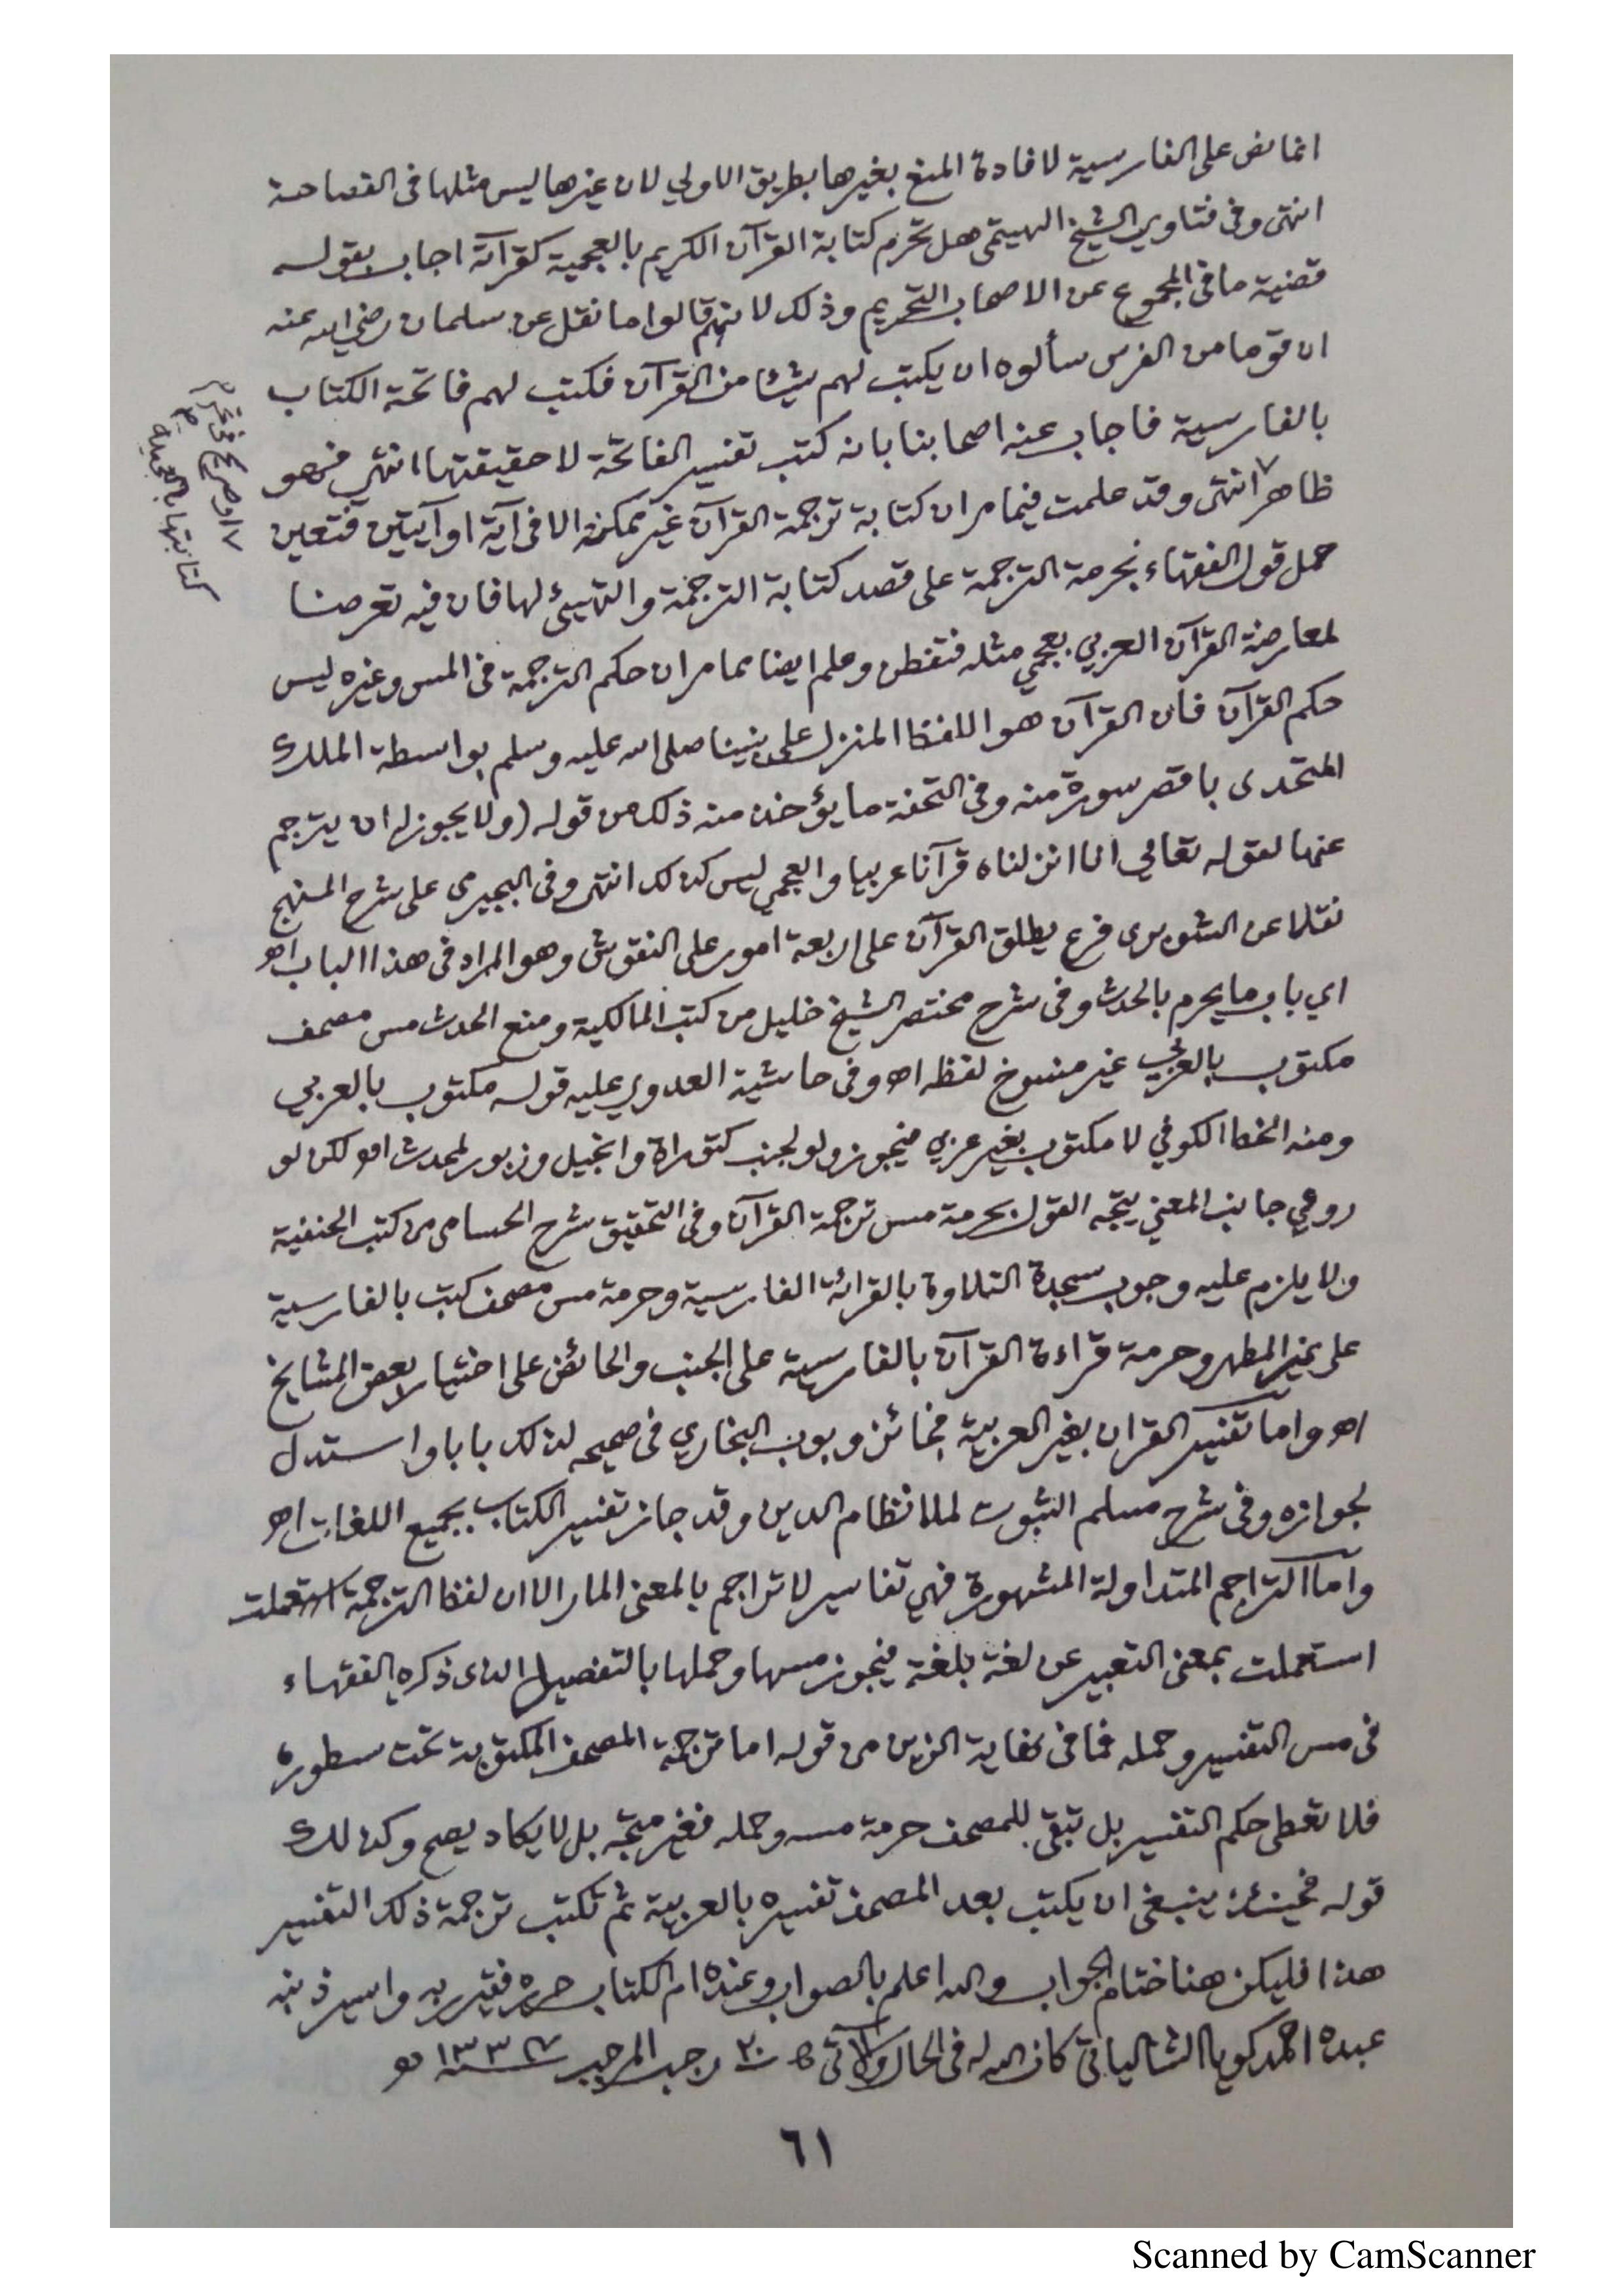 انما نص على الفارسية لافادة المنع بغيرها بطريق الاولي لان غيرها ليس مثلها فى الفصاحة
انتهى وفى فتاوي الشيخ الهيتمى هل تحرم كتابة القرآن الكريم بالعجمية كقرآته اجاب بقوله
قضية ما فى المجموع عن الاصحاب التحريم وذلك لانهم قالوا ما نقل عن سلمان رضي الله عنه
ان قوما من الفرس سألوه ان يكتب لهم شيئا من القرآن فكتب لهم فاتحة الكتاب
بالفارسية فاجاب عنه اصحابنا بانه كتب تفسير الفاتحة لا حقيقتها انتهى فهو
ظاهر٧ انتهى وقد علمت فيما مر ان كتابة ترجمة القرآن غير ممكنة الا فى آية او آيتين فتعين
حمل قول الفقهاء بحرمة الترجمة على قصد كتابة الترجمة والتهيئ لها فان فيه تعرضا
لمعارضة القرآن العربي بعجمي مثله فتفطن وعلم ايضا مما مر ان حكم الترجمة فى المس وغيره ليس
حكم القرآن فان القرآن هو اللفظ المنزل على نبينا صلى الله عليه وسلم بواسطة الملك
المتحدى باقصر سورة منه وفى التحفة ما يؤخذ منه ذلك من قوله (ولا يجوز له ان يترجم
عنها لقوله تعالي انا انزلناه قرآنا عربيا والعجمي ليس كذلك انتهى وفى البجيرمى على شرح المنهج
نقلا عن الشوبرى فرع يطلق القرآن على اربعة امور على النقوش وهو المراد فى هذا الباب اهـ
اي باب ما يحرم بالحدث وفى شرح مختصر الشيخ خليل من كتب المالكية ومنع الحدث مس مصحف
مكتوب بالعربي غير منسوخ لفظه اهـ وفى حاشية العدوي عليه قوله مكتوب بالعربي
ومنه الخط الكوفي لا مكتوب بغير عربي فيجوز ولو لجنب كتوراة وانجيل وزبور لمحدث اهـ لكن لو
روعي جانب المعني يتجه القول بحرمة مس ترجمة القرآن وفى التحقيق شرح الحسامى من كتب الحنفية
ولا يلزم عليه وجوب سجدة التلاوة بالقرائة الفارسية وحرمة مس مصحف كتب بالفارسية
على غير المطهر وحرمة قراءة القرآن بالفارسية على الجنب والحائض على اختيار بعض المشايخ
اهـ واما تفسير القران بغير العربية فجائز وبوب البخاري فى صحيحه لذلك بابا واستدل
لجوازه وفى شرح مسلم الثبوت لملا نظام الدين وقد جاز تفسير الكتاب بجميع اللغات اهـ
واما التراجم المتداولة المشهورة فهي تفاسير لا تراجم بالمعنى المار الا ان لفظ الترجمة استعملت
استعملت بمعنى التعبير عن لغة بلغة فيجوز مسها وحملها بالتفصيل الذى ذكره الفقهاء
فى مس التفسير وحمله فما فى نهاية الزين من قوله اما ترجمة المصحف المكتوبة تحت سطوره
فلا تعطى حكم التفسير بل تبقى للمصحف حرمة مسه وحمله فغير متجه بل لا يكاد يصح وكذلك
قوله فحينئذ ينبغى ان يكتب بعد المصحف تفسيره بالعربية ثم تكتب ترجمة ذلك التفسير
هذا فليكن هنا ختام الجواب والله اعلم بالصواب وعنده ام الكتاب حرره فقير ربه واسير ذنبه
عبده احمد كويا الشالياتى كان الله له فى الحال والآتى ٢٠ رجب المرجب سنة ١٣٣٧ هـ
٧ او صريح فى تحريم
كتابتها بالعجمية
٦١
Scanned by CamScanner